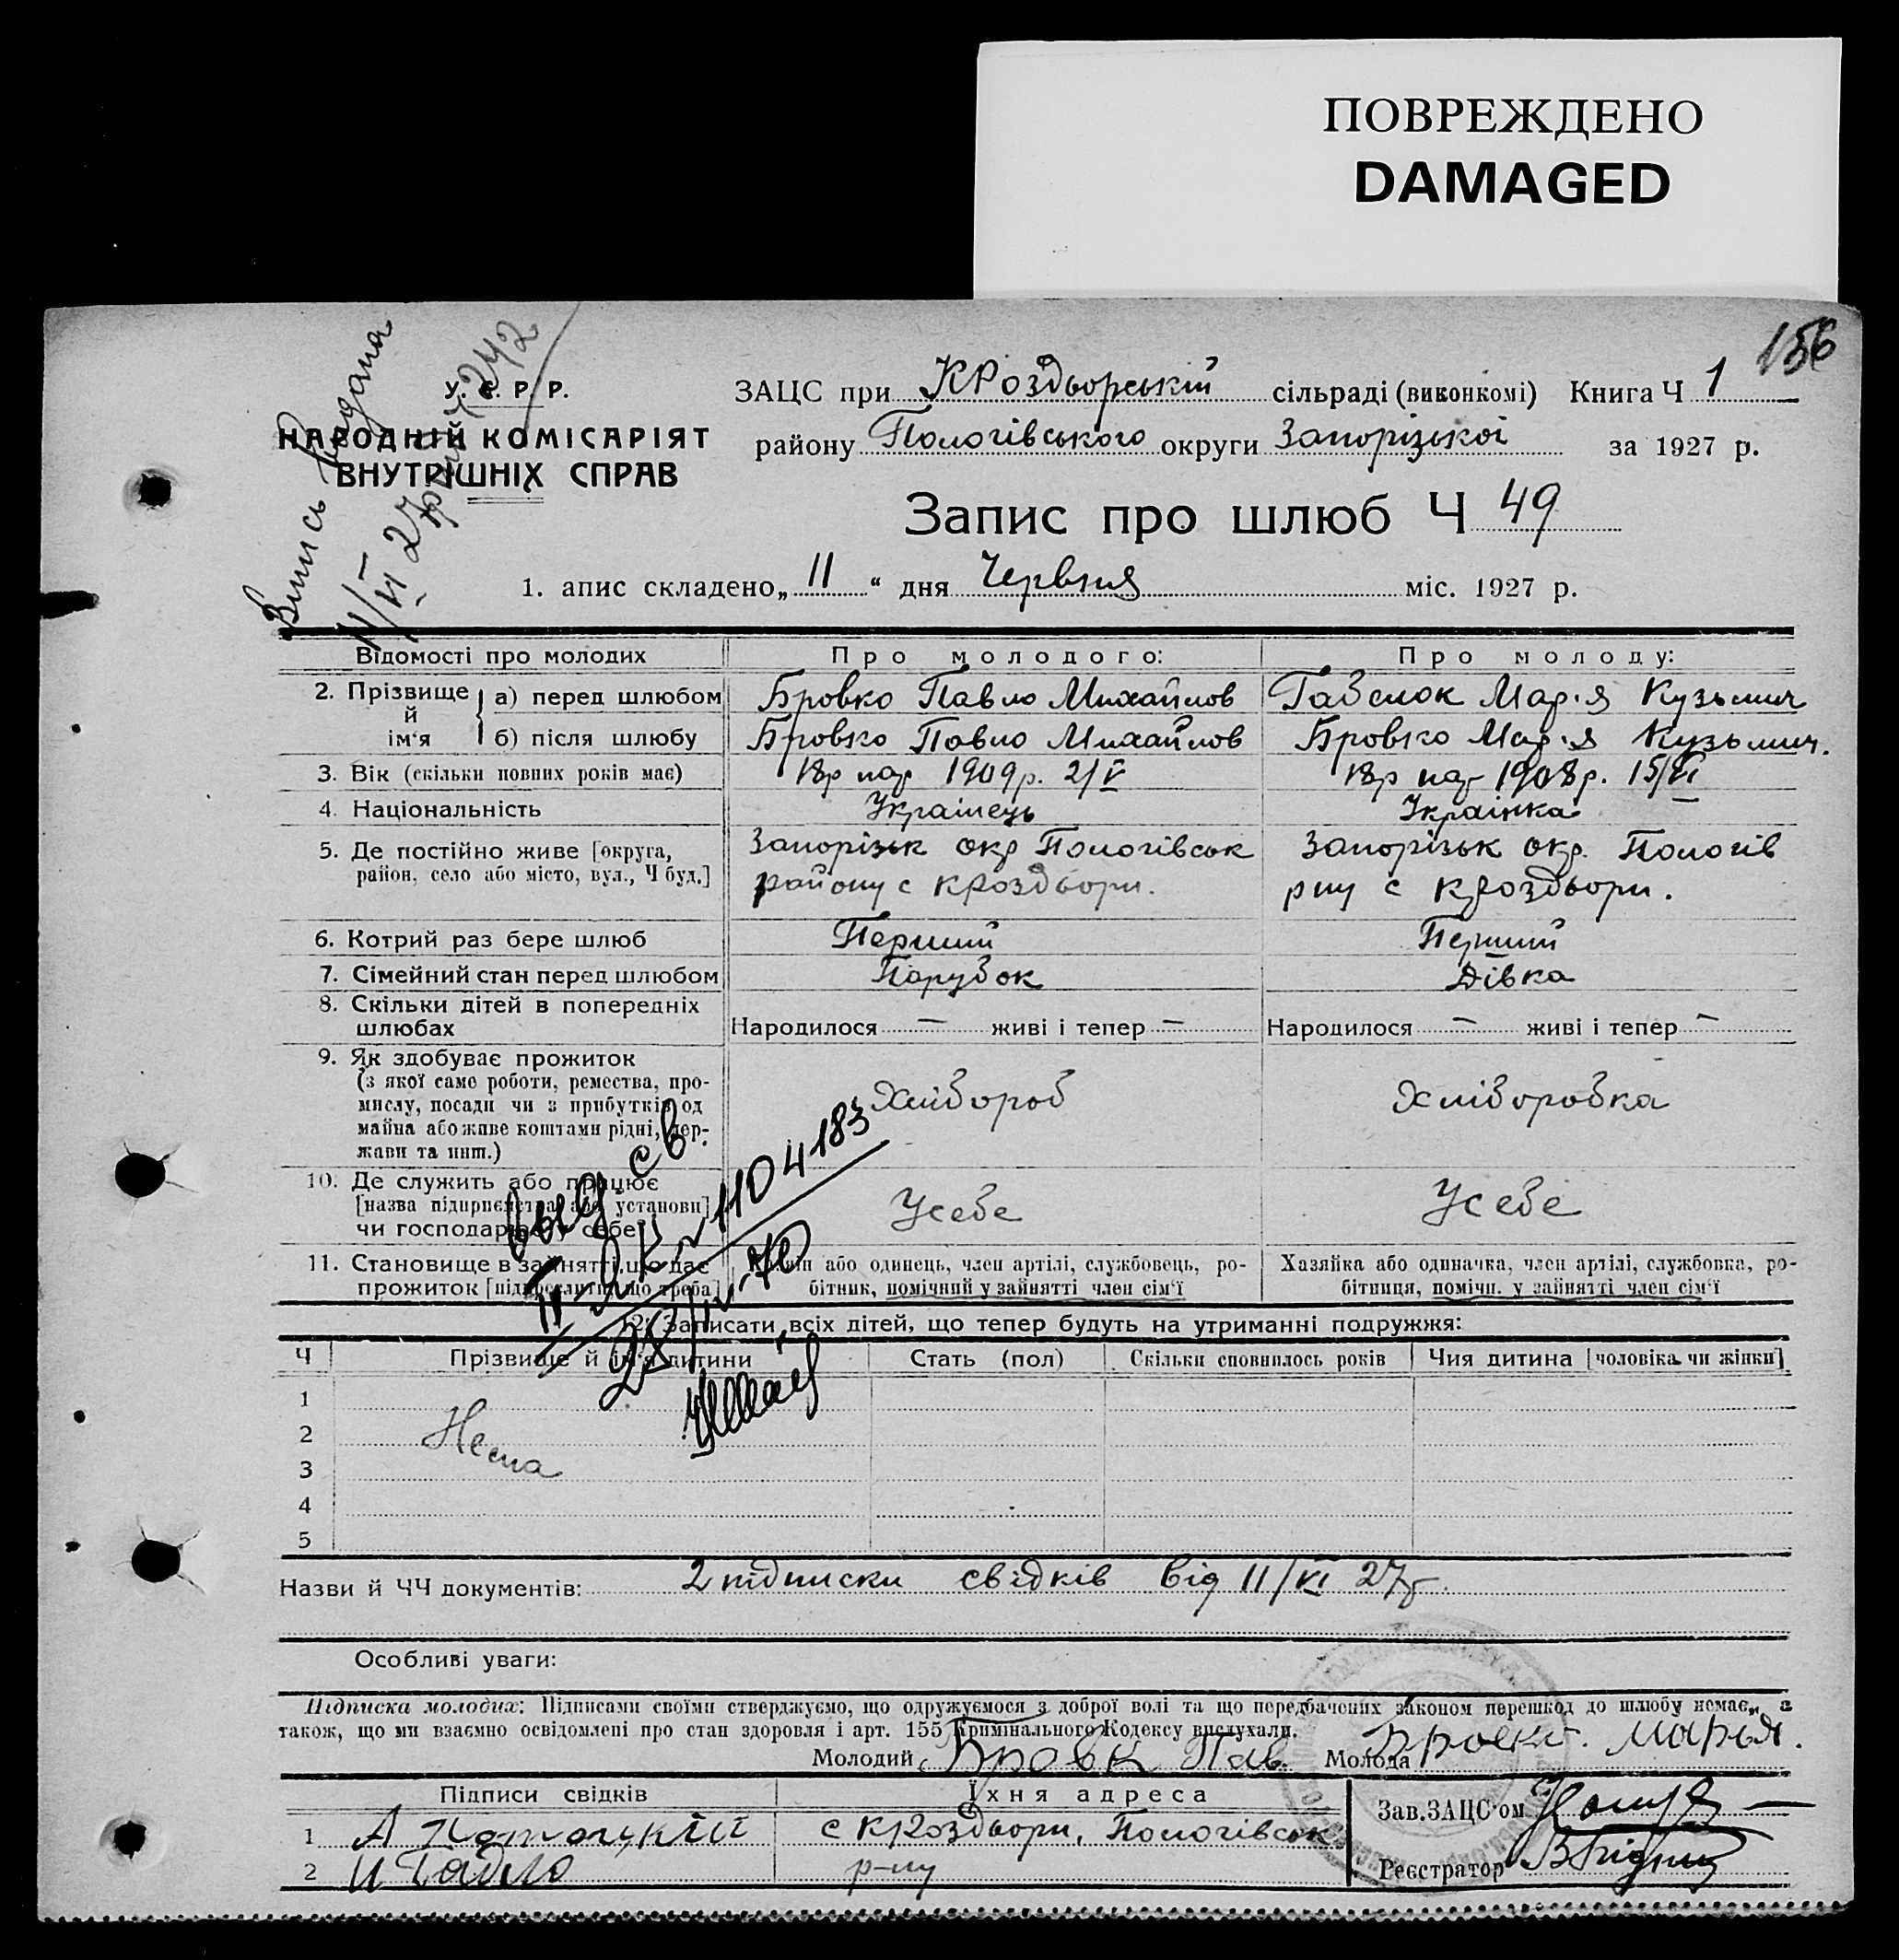 ПОВРЕЖДЕНО
DAMAGED
156
Випись видана
11/VI 27р
242
У. С. Р. Р.
НАРОДНІЙ КОМІСАРІЯТ
ВНУТРІШНІХ СПРАВ
ЗАЦС при КРоздьорській сільраді (виконкомі) Книга Ч 1
району Пологівського округи Запорізької за 1927 р.
Запис про шлюб Ч 49
1. апис складено „ 11 “ дня Червня міс. 1927 р.
Відомості про молодих Про молодого: Про молоду:
2. Прізвище й ім‘я а) перед шлюбом Бровко Павло Михайлов Марія Кузьмич
б) після шлюбу Бровко Павло Михайлов Бровко Марія Кузьмич.
3. Вік (скільки повних років має) 18р нар 1909р. 2/V 18р нар 1908р. 15/VI
4. Національність Українець Українка
5. Де постійно живе [округа, район, село або місто, вул., Ч буд.] Запорізьк окр Пологівськ Запорізьк окр. Пологів
району с КРоздьори. рну с КРоздьори.
6. Котрий раз бере шлюб Перший Перший
7. Сімейний стан перед шлюбом Парубок Дівка
8. Скільки дітей в попередніх шлюбах Народилося — живі і тепер — Народилося — живі і тепер —
9. Як здобуває прожиток
(з якої саме роботи, ремества, про-
мислу, посади чи з прибутків од
майна або живе коштами рідні, дер-
жави та инш.)
Хлібороб Хліборобка
10. Де служить або працює
[назва підприємства або установи]
чи господарює у себе
Усебе Усебе
11. Становище в зайнятті, що дає
прожиток [підкреслити що треба]
Хазяїн або одинець, член артілі, службовець, ро-
бітник, помічний у зайнятті член сім‘ї
Хазяйка або одиначка, член артілі, службовка, ро-
бітниця, помічн. у зайнятті член сім‘ї
выд св.
1104183
12. Записати всіх дітей, що тепер будуть на утриманні подружжя:
Ч Прізвище й ім‘я дитини Стать (пол) Скільки сповнилось років Чия дитина [чоловіка чи жінки]
1
2 Нема
3
4
5
Назви й ЧЧ документів: 2 підписки свідків від 11/VI 27р
Особливі уваги:
Підписка молодих: Підписами своїми стверджуємо, що одружуємося з доброї волі та що передбачених законом перешкод до шлюбу немає, а
також, що ми взаємно освідомлені про стан здоровля і арт. 155 Кримінального Кодексу вислухали.
Молодий Бровк Пав. Молода Бровк. Марья.
Підписи свідків Їхня адреса
1 с КРоздьори, Пологівськ
2 р-ну
Зав.ЗАЦС‘ом
Реєстратор